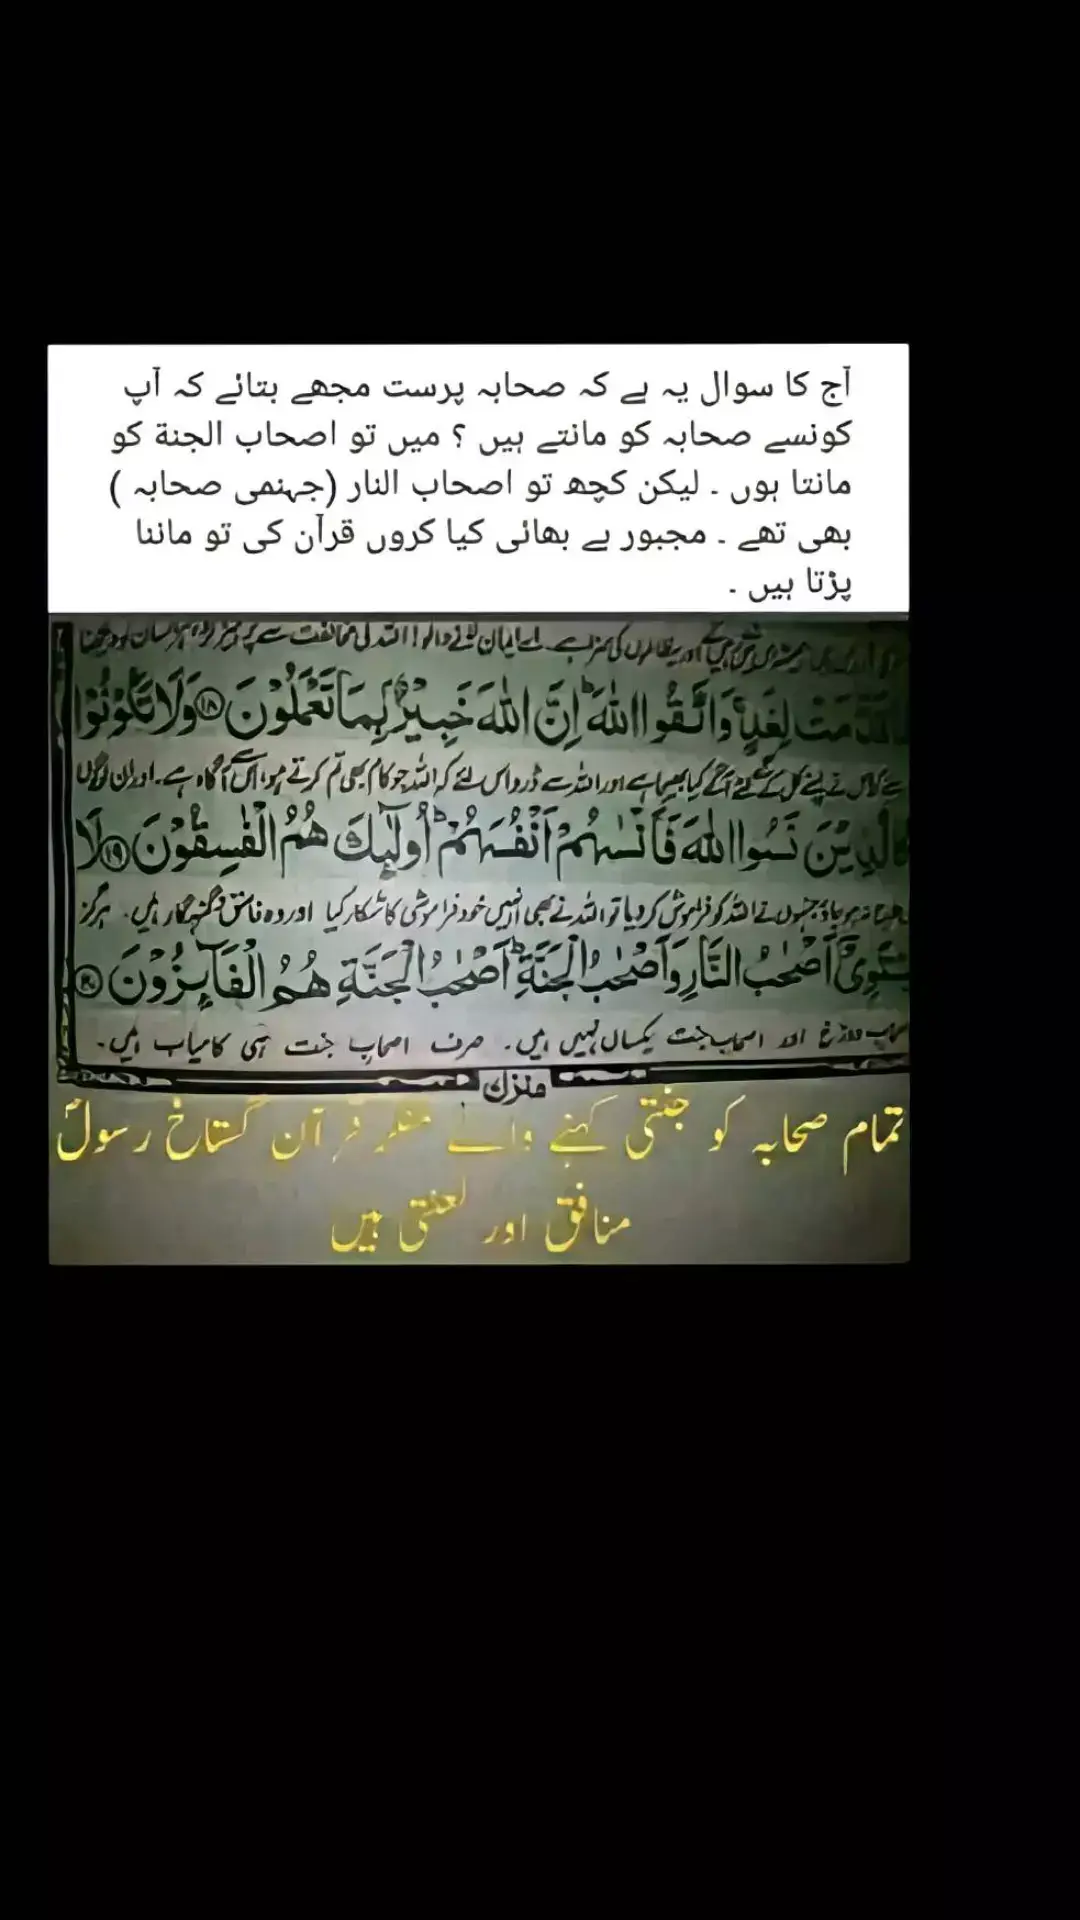 آج کا سوال یہ ہے کہ صحابہ پرست مجھے بتائے کہ آپ
کونسے صحابہ کو مانتے ہیں ؟ میں تو اصحاب الجنة کو
مانتا ہوں ۔ لیکن کچھ تو اصحاب النار (جہنمی صحابہ )
بھی تھے ۔ مجبور ہے بھائی کیا کروں قرآن کی تو ماننا
پڑتا ہیں ۔
اور یہی ظالموں کی سزا ہے۔ اے ایمان لانے والو! اللہ کی مخالفت سے
قَدَّمَتْ لِغَدٍ وَاتَّقُوا اللّٰهَ اِنَّ اللّٰهَ خَبِيْرٌۢ بِمَا تَعْمَلُوْنَ ۱۸ وَلَا تَكُوْنُوْا
نے اپنے کل کے لئے آگے کیا بھیجا ہے اور اللہ سے ڈرو اس لئے کہ اللہ جو کام بھی تم کرتے ہو، اس سے آگاہ ہے۔ اور ان لوگوں
كَالَّذِيْنَ نَسُوا اللّٰهَ فَاَنْسٰىهُمْ اَنْفُسَهُمْ اُولٰٓئِكَ هُمُ الْفٰسِقُوْنَ ۱۹ لَا
نہ ہو جاؤ جنہوں نے اللہ کو فراموش کر دیا تو اللہ نے بھی انہیں خود فراموشی کا شکار کیا اور وہ فاسق و گنہگار ہیں۔ ہرگز
يَسْتَوِيْٓ اَصْحٰبُ النَّارِ وَاَصْحٰبُ الْجَنَّةِ اَصْحٰبُ الْجَنَّةِ هُمُ الْفَآئِزُوْنَ ۲۰
اصحاب دوزخ اور اصحاب جنت یکساں نہیں ہیں۔ صرف اصحاب جنت ہی کامیاب ہیں۔
منزل
تمام صحابہ کو جنتی کہنے والے منکر قرآن گستاخ رسولؐ
منافق اور لعنتی ہیں